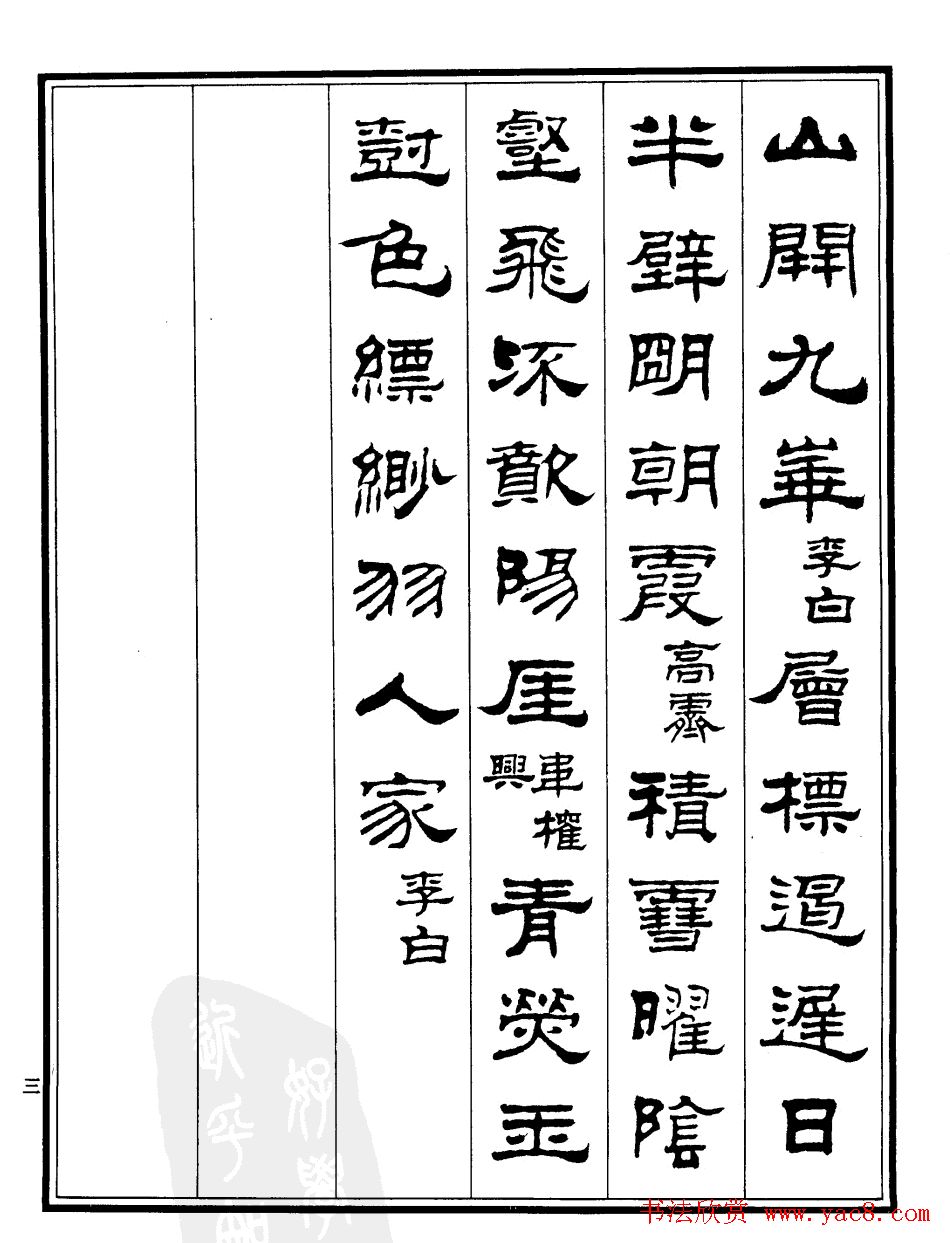 山開九華李白層標遏遲日
半壁朙朝霞高霽積雪曜陰
壑飛流歕陽厓韋權興青熒玉
樹色縹緲羽人家李白
三
书法欣赏 www.yac8.com